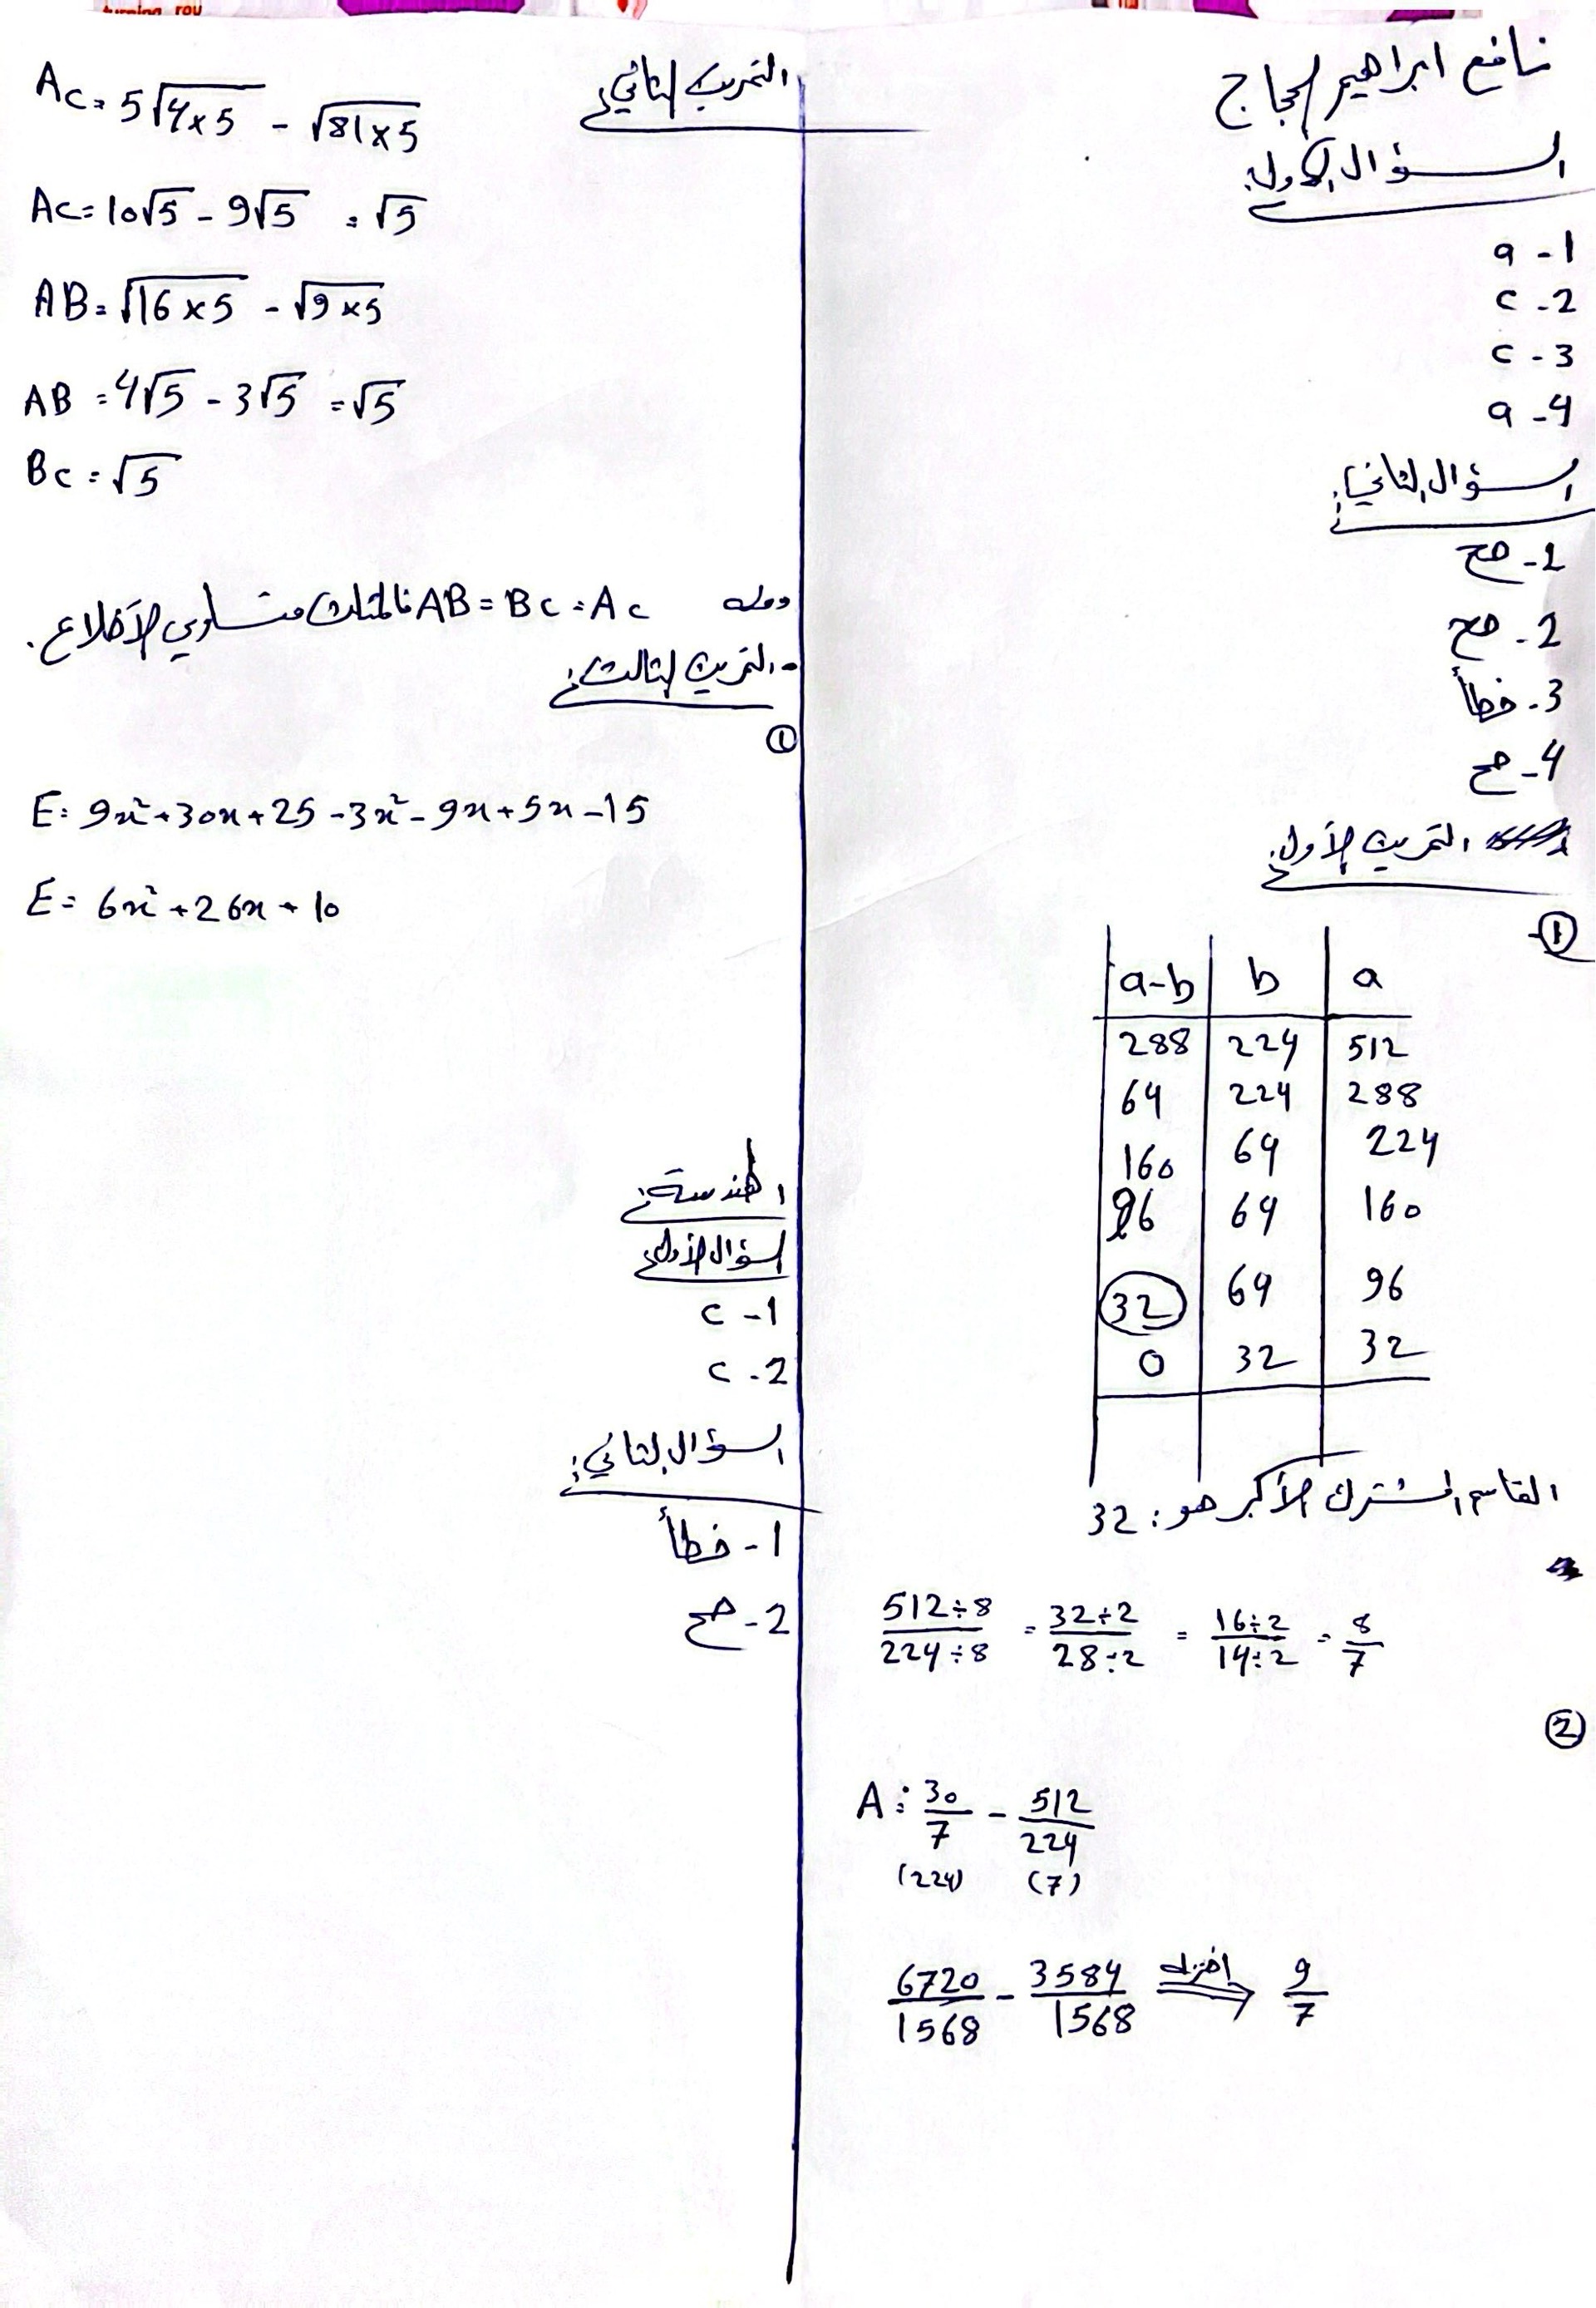 نافع ابراهيم الحجاج
السؤال الأول:
a - 1
c - 2
c - 3
a - 4
السؤال الثاني:
1 - صح
2 - صح
3 - خطأ
4 - صح
التمرين الأول:
①
a-b | b | a
288 | 224 | 512
64 | 224 | 288
160 | 64 | 224
96 | 64 | 160
32 | 64 | 96
0 | 32 | 32
القاسم المشترك الأكبر هو: 32
512÷8/224÷8 = 32÷2/28÷2 = 16÷2/14÷2 = 8/7
②
A = 30/7 - 512/224
(224) (7)
6720/1568 - 3584/1568 اختزل ⟹ 9/7
التمرين الثاني:
Ac = 5√4×5 - √81×5
Ac = 10√5 - 9√5 = √5
AB = √16×5 - √9×5
AB = 4√5 - 3√5 = √5
Bc = √5
ومنه AB = Bc = Ac فالمثلث متساوي الأضلاع.
التمرين الثالث:
①
E = 9x²+30x+25-3x²-9x+5x-15
E = 6x²+26x+10
الهندسة:
السؤال الأول:
c - 1
c - 2
السؤال الثاني:
1 - خطأ
2 - صح